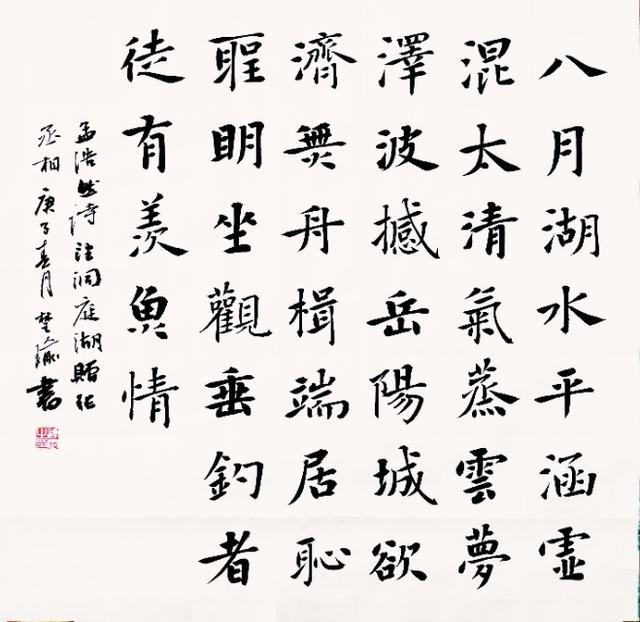 八月湖水平涵虛
混太清氣蒸雲夢
澤波撼岳陽城欲
濟無舟楫端居恥
聖明坐觀垂釣者
徒有羨魚情
孟浩然詩望洞庭湖贈張
丞相庚子春月書